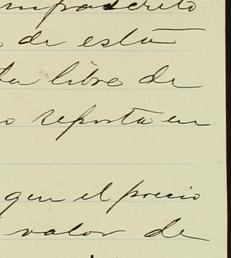 infrascrito
de esta
libre de
reporta en
que el precio
valor de